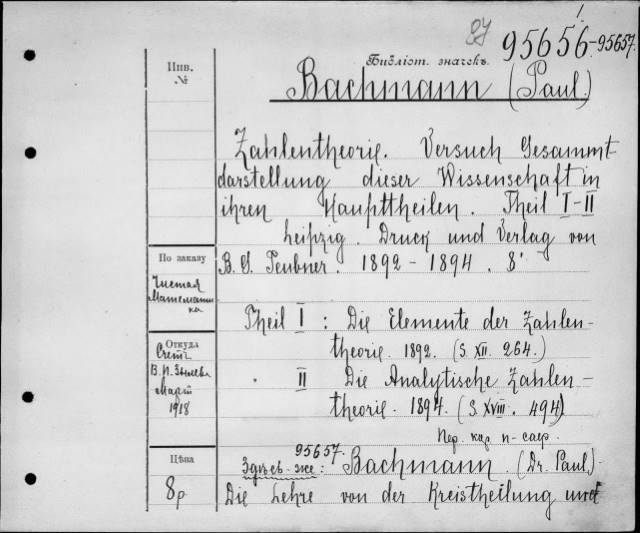 95656-95657.
Инв.
№
Библіот. значекъ.
Bachmann (Paul.)
Zahlentheorie. Versuch Gesammt-
darstellung dieser Wissenschaft in
ihren Haupttheilen. Theil I-II
Leipzig. Druck und Verlag von
B. G. Teubner. 1892-1894. 8°
По заказу
Чистая
Математи
ка
Theil I: Die Elemente der Zahlen-
theorie. 1892. (S. XII. 264.)
" II Die Analytische Zahlen-
theorie. 1894. (S. XVIII. 494)
Откуда
Счетъ
Март
1918
Пер.
95657.
Здѣсь-же: Bachmann. (Dr. Paul.)
Die Lehre von der Kreistheilung und
Цѣна
8р